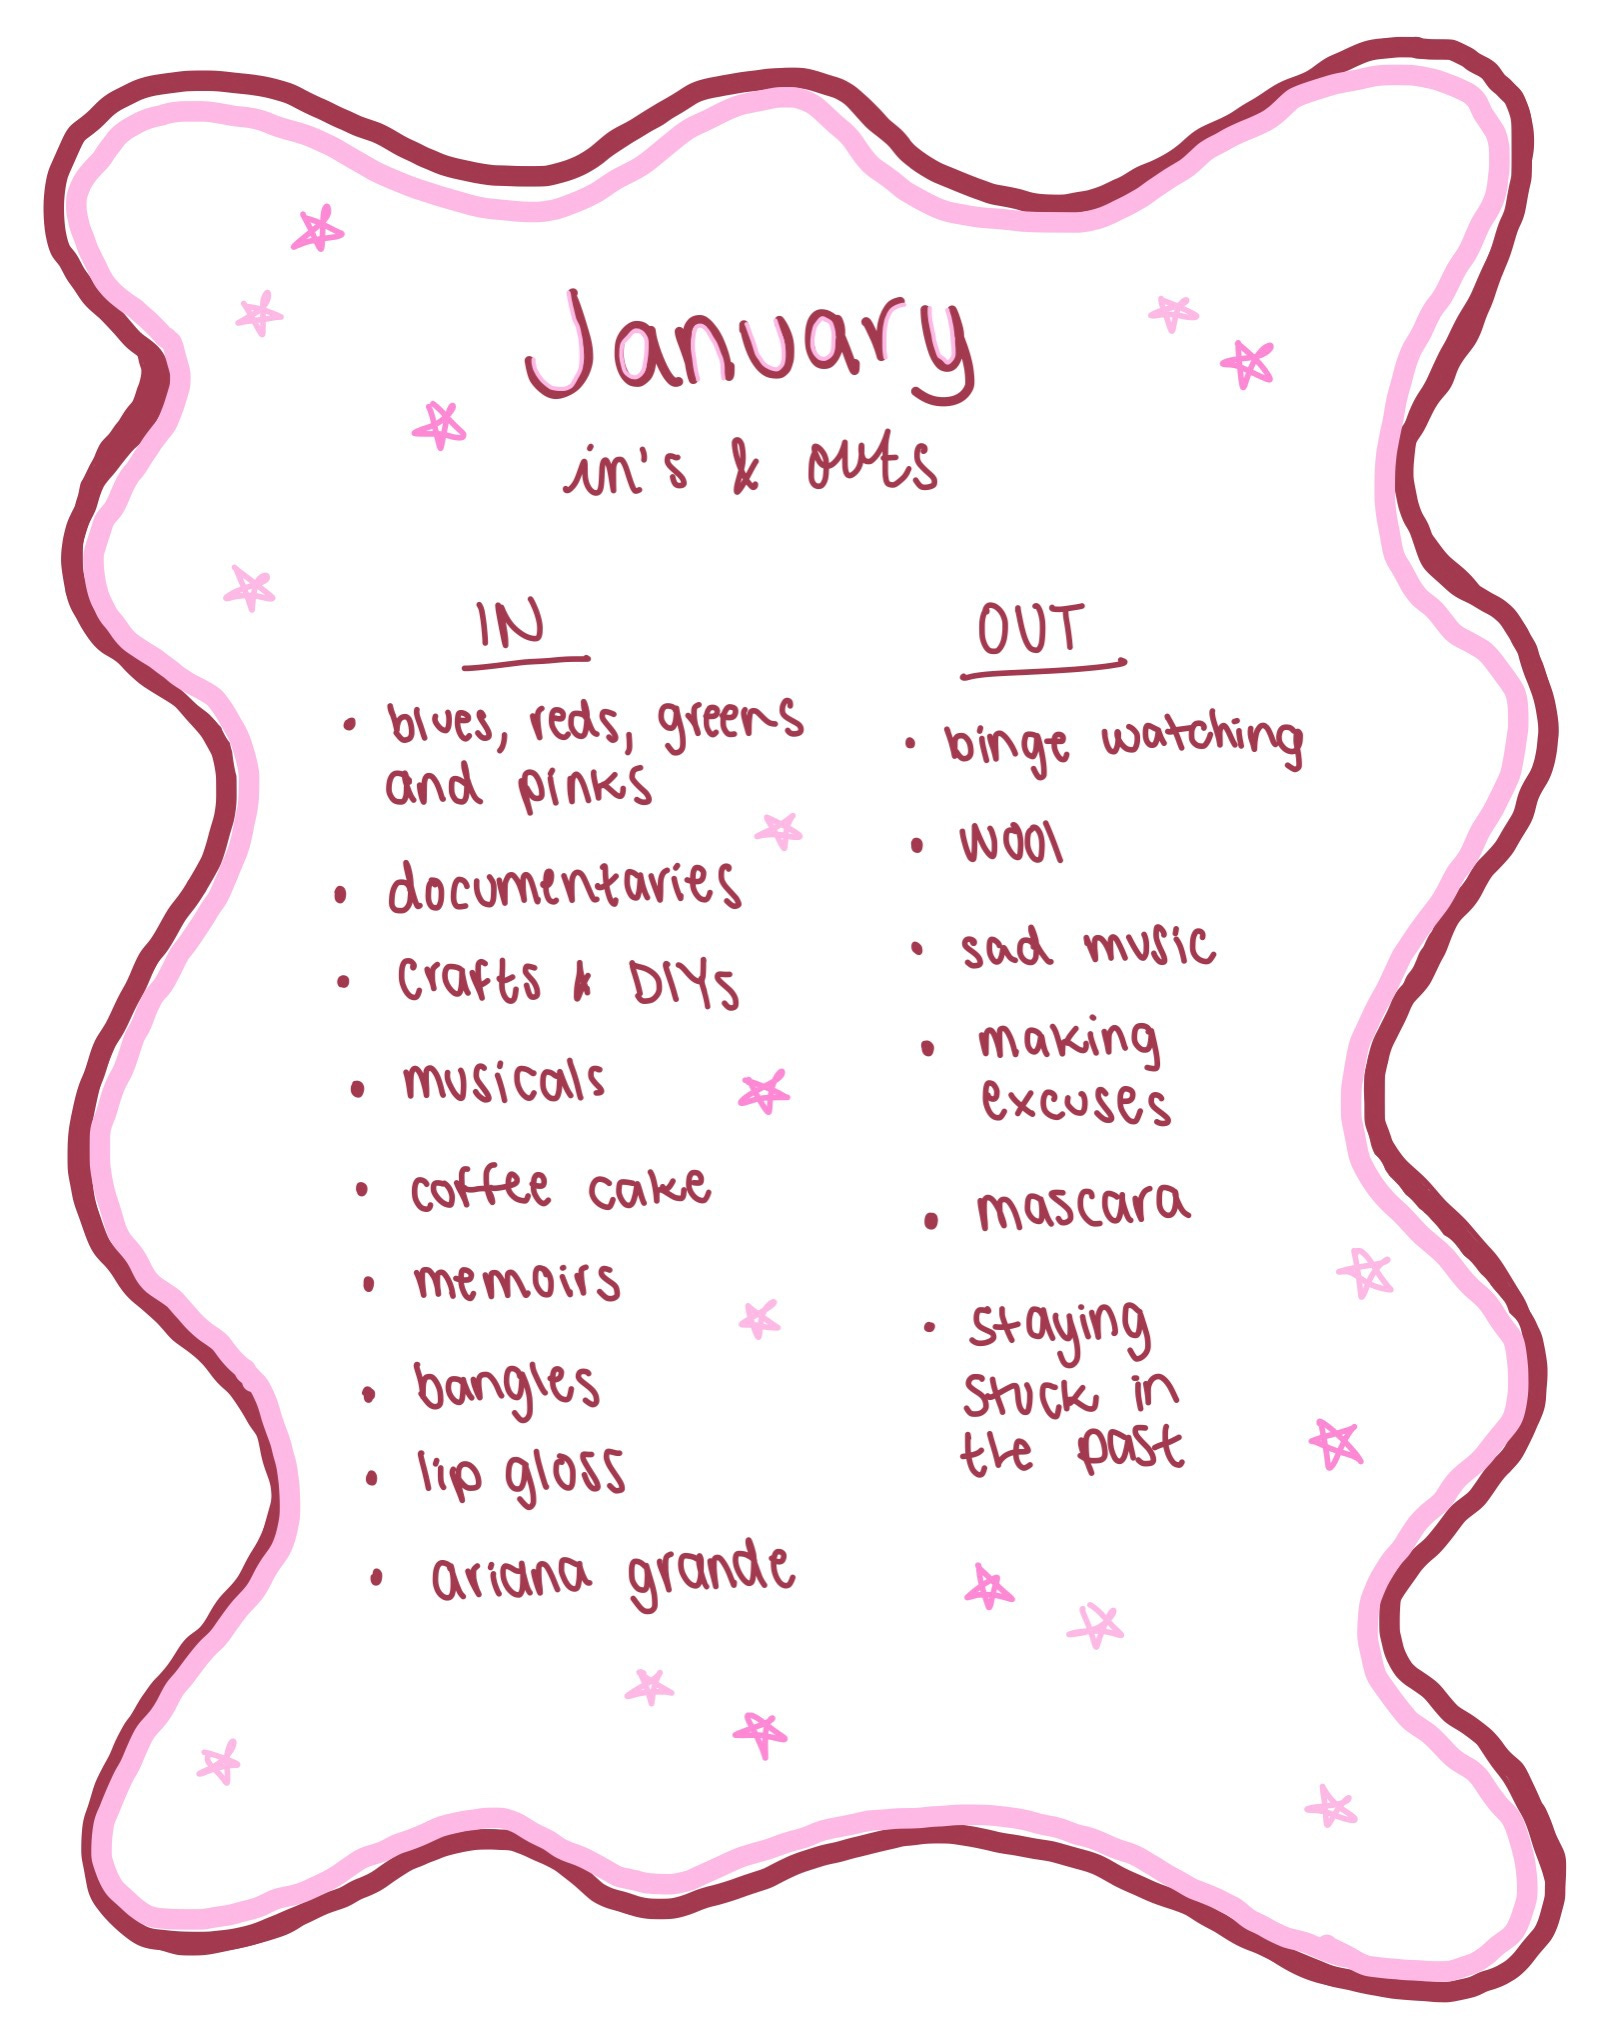 January
in's & outs
IN
• blues, reds, greens
and pinks
• documentaries
• crafts & DIYs
• musicals
• coffee cake
• memoirs
• bangles
• lip gloss
• ariana grande
OUT
• binge watching
• wool
• sad music
• making
excuses
• mascara
• staying
stuck in
the past